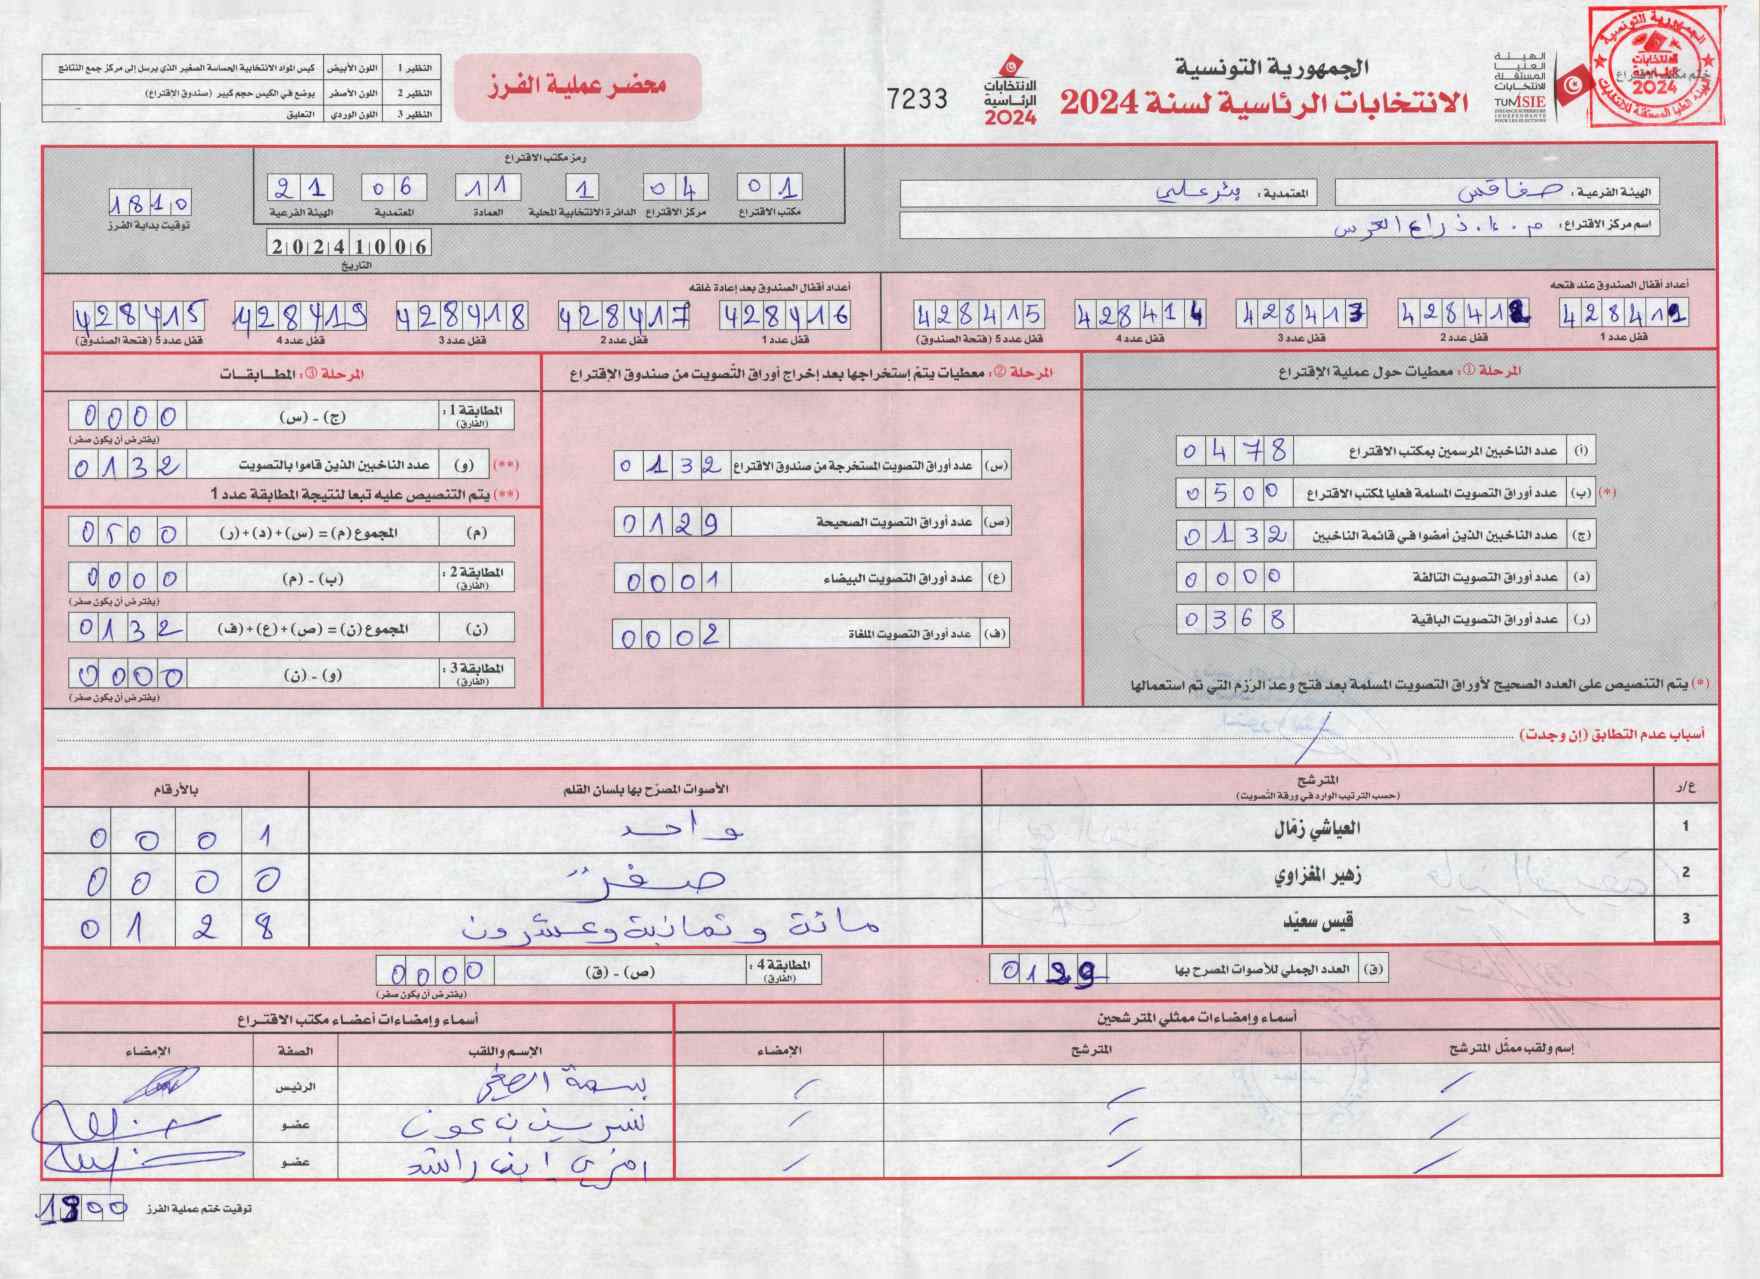 الجمهورية التونسية
الانتخابات الرئاسية لسنة 2024
الهيئة العليا المستقلة للانتخابات
TUNISIE
INSTANCE SUPERIEURE INDEPENDANTE POUR LES ELECTIONS
ختم مكتب الاقتراع
الانتخابات الرئاسية 2024
7233
محضر عملية الفرز
النظير 1 اللون الأبيض كيس المواد الانتخابية الحساسة الصغير الذي يرسل إلى مركز جمع النتائج
النظير 2 اللون الأصفر يوضع في الكيس حجم كبير (صندوق الإقتراع)
النظير 3 اللون الوردي التعليق
الهيئة الفرعية: صفاقس المعتمدية: بئر علي
اسم مركز الاقتراع:
رمز مكتب الاقتراع
01 04 1 11 06 21
مكتب الاقتراع مركز الاقتراع الدائرة الانتخابية المحلية العمادة المعتمدية الهيئة الفرعية
20241006
التاريخ
1810
توقيت بداية الفرز
أعداد أقفال الصندوق عند فتحه
428412 428413 428414 428415
قفل عدد 1 قفل عدد 2 قفل عدد 3 قفل عدد 4 قفل عدد 5 (فتحة الصندوق)
أعداد أقفال الصندوق بعد إعادة غلقه
428416 428417 428418 428419 428415
قفل عدد 1 قفل عدد 2 قفل عدد 3 قفل عدد 4 قفل عدد 5 (فتحة الصندوق)
المرحلة ①: معطيات حول عملية الإقتراع
(أ) عدد الناخبين المرسمين بمكتب الاقتراع 0478
(*) (ب) عدد أوراق التصويت المسلمة فعليا لمكتب الاقتراع 0500
(ج) عدد الناخبين الذين أمضوا في قائمة الناخبين 0132
(د) عدد أوراق التصويت التالفة 0000
(ر) عدد أوراق التصويت الباقية 0368
(*) يتم التنصيص على العدد الصحيح لأوراق التصويت المسلمة بعد فتح وعد الرزم التي تم استعمالها
المرحلة ②: معطيات يتم إستخراجها بعد إخراج أوراق التّصويت من صندوق الإقتراع
(س) عدد أوراق التصويت المستخرجة من صندوق الاقتراع 0132
(ص) عدد أوراق التصويت الصحيحة 0129
(ع) عدد أوراق التصويت البيضاء 0001
(ف) عدد أوراق التصويت الملغاة 0002
المرحلة ③: المطــابقــات
المطابقة 1: (الفارق) (ج) - (س) 0000
(يفترض أن يكون صفر)
(**) (و) عدد الناخبين الذين قاموا بالتصويت 0132
(**) يتم التنصيص عليه تبعا لنتيجة المطابقة عدد 1
(م) المجموع (م) = (س)+(د)+(ر) 0500
المطابقة 2: (الفارق) (ب) - (م) 0000
(يفترض أن يكون صفر)
(ن) المجموع (ن) = (ص)+(ع)+(ف) 0132
المطابقة 3: (الفارق) (و) - (ن) 0000
(يفترض أن يكون صفر)
أسباب عدم التطابق (إن وجدت) /
ع/ر المترشح (حسب الترتيب الوارد في ورقة التّصويت) الأصوات المصرّح بها بلسان القلم بالأرقام
1 العياشي زمّال واحد 0001
2 زهير المغزاوي صفر 0000
3 قيس سعيّد مائة وثمانية وعشرون 0128
(ق) العدد الجملي للأصوات المصرح بها 0129
المطابقة 4: (الفارق) (ص) - (ق) 0000
(يفترض أن يكون صفر)
أسماء وإمضاءات ممثلي المترشحين
إسم ولقب ممثّل المترشح المترشح الإمضاء
أسماء وإمضاءات أعضاء مكتب الاقتـراع
الإسم واللقب الصفة الإمضاء
بسمة الرئيس
نسرين بن عون عضو
ابن راشد عضو
توقيت ختم عملية الفرز